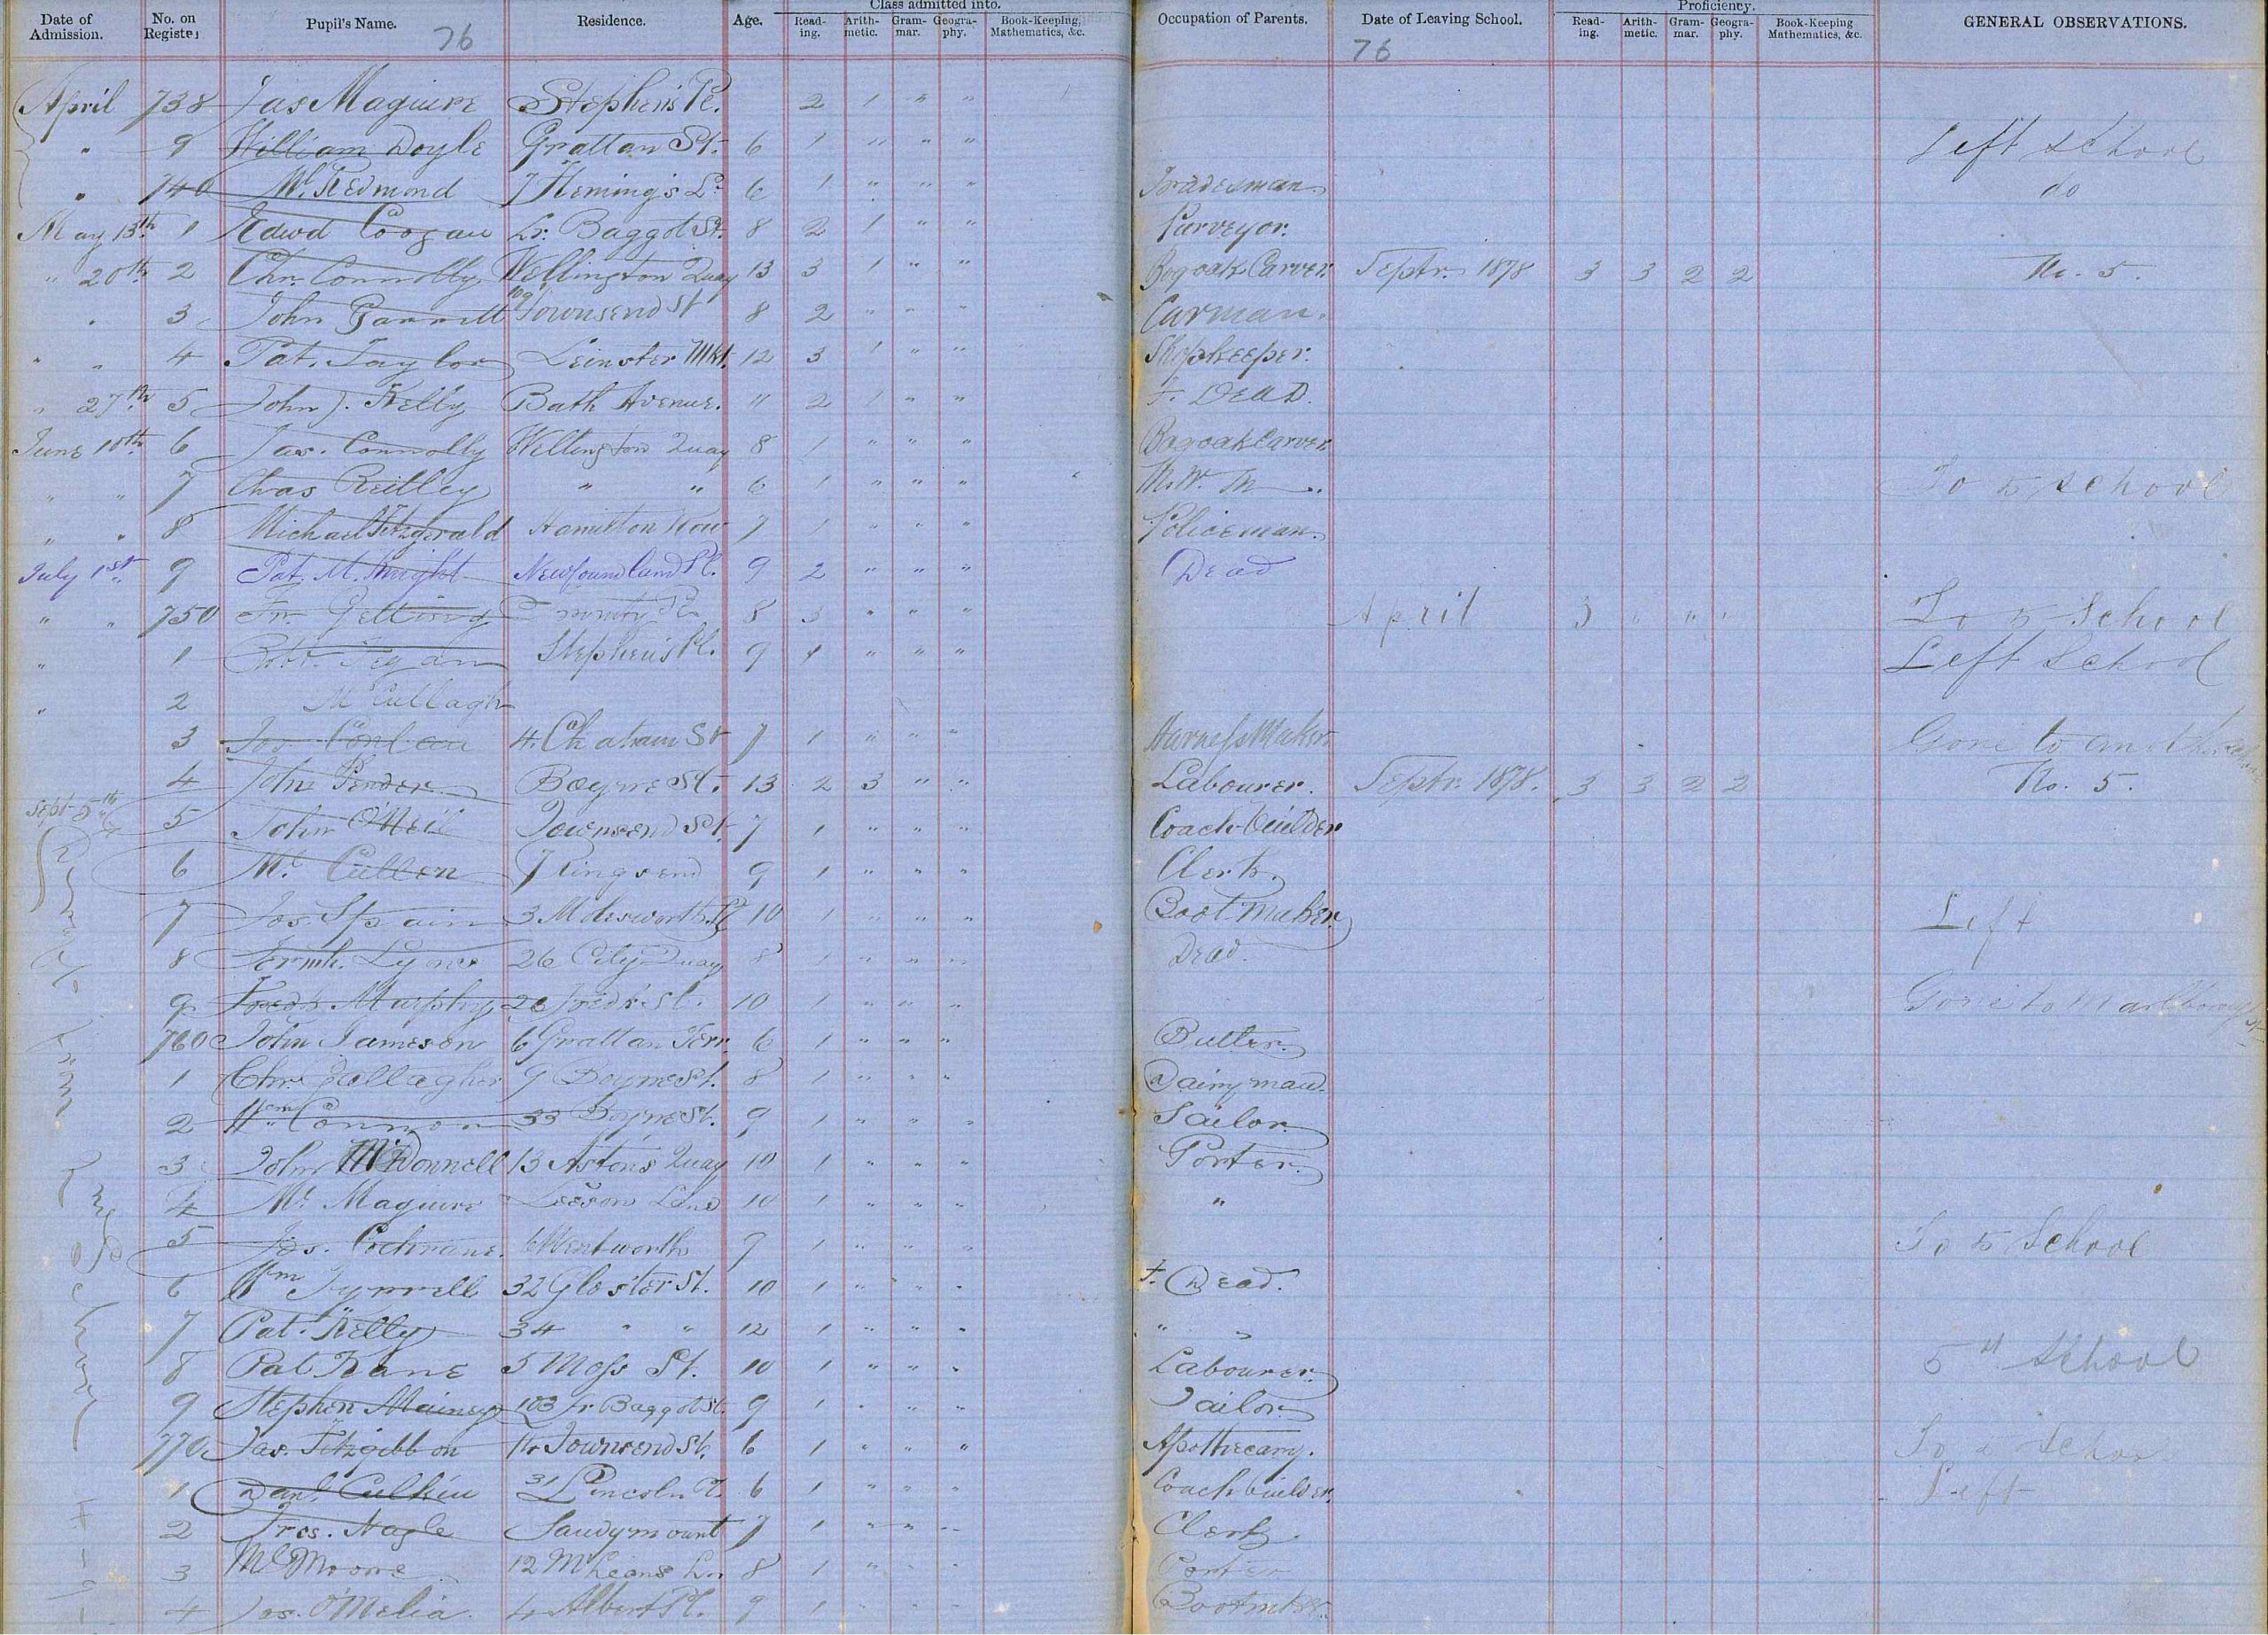 Date of Admission. No. on Register Pupil's Name. 76 Residence. Age. Class admitted into. Reading. Arithmetic. Grammar. Geography. Book-Keeping, Mathematics, &c. Occupation of Parents. Date of Leaving School. 76 Proficiency. Reading. Arithmetic. Grammar. Geography. Book-Keeping Mathematics, &c. GENERAL OBSERVATIONS.
April 738 Jas Maguire Stephen's Pl. 2 1 " "
" 9 William Doyle Grattan St. 6 1 " " " Left school
" 740 Ml. Redmond 7 Fleming's La. 6 1 " " " Tradesman. do
May 13th 1 Edwd Coogan Lr. Baggot St. 8 2 1 " " Purveyor.
" 20th 2 Chr. Connolly Wellington Quay 13 3 1 " " Bogoak Carver. Septr. 1878 3 3 2 2 No. 5.
" 3 John Garrett 109 Townsend St 8 2 " " " Carman.
" " 4 Pat. Taylor Leinster Mkt. 12 3 1 " " Shopkeeper.
" 27th 5 John J. Kelly Bath Avenue. 11 2 1 " " F. Dead.
June 10th 6 Jas. Connolly Wellington Quay 8 1 " " " Bogoak Carver.
" " 7 Chas Reilley " " 6 1 " " " To 5 school
" " 8 Michael Fitzgerald Hamilton Row 7 1 " " " Policeman.
July 1st 9 Pat. McKnight Newfoundland St. 9 2 " " " Dead
" " 750 Fr. Gelling Trinity Pl 8 3 " " " April 3 " " " To 5 School
" 1 Robt. Fegan Stephen's Pl. 9 1 " " " Left School
" 2 McCullagh
3 Jos. Conlan 4 Chatham St 7 1 " " " Harness Maker. Gone to another
4 John Pender Boyne St. 13 2 3 " " Labourer. Septr. 1878. 3 3 2 2 No. 5.
Sept 5th 5 John O'Neil Townsend St. 7 1 " " " Coach-builder
6 Ml. Cullen Ringsend 9 1 " " " Clerk.
7 Jos. Spain 3 Molesworth St 10 1 " " " Boot Maker. Left
8 Jermh. Lyons 26 City Quay 8 1 " " " Dead.
9 Fredk Murphy 20 Fredk St. 10 1 " " " Gone to Marlboro St
760 John Jameson 6 Grattan Terr. 6 1 " " " Butler.
1 Chr. Gallagher 9 Boyne St. 8 1 " " " Dairyman.
2 Wm Connor 33 Boyne St. 9 1 " " " Sailor.
3 John McDonnell 13 Aston's Quay 10 1 " " " Porter.
4 Ml. Maguire Leeson Lane 10 1 " " " "
5 Jos. Cochrane. 6 Wentworth 7 1 " " " To 5 School
6 Wm Tyrrell 32 Gloster St. 10 1 " " " F. Dead.
7 Pat. Kelly 34 " " 12 1 " " " " "
8 Pat Kane 5 Moss St. 10 1 " " " Labourer. 5th School
9 Stephen Mainey 103 Lr Baggot St. 9 1 " " " Tailor
770 Jas. Fitzgibbon Townsend St. 6 1 " " " Apothecary. To 5 School
1 Danl. Culkin 31 Lincoln Pl. 6 1 " " " Coachbuilder. Left
2 Fras. Nagle Sandymount 7 1 " " " Clerk.
3 Ml Moore 12 McLeans Ln. 8 1 " " " Porter
4 Jos. O'Melia. 4 Albert Pl. 9 1 " " " Bootmker.